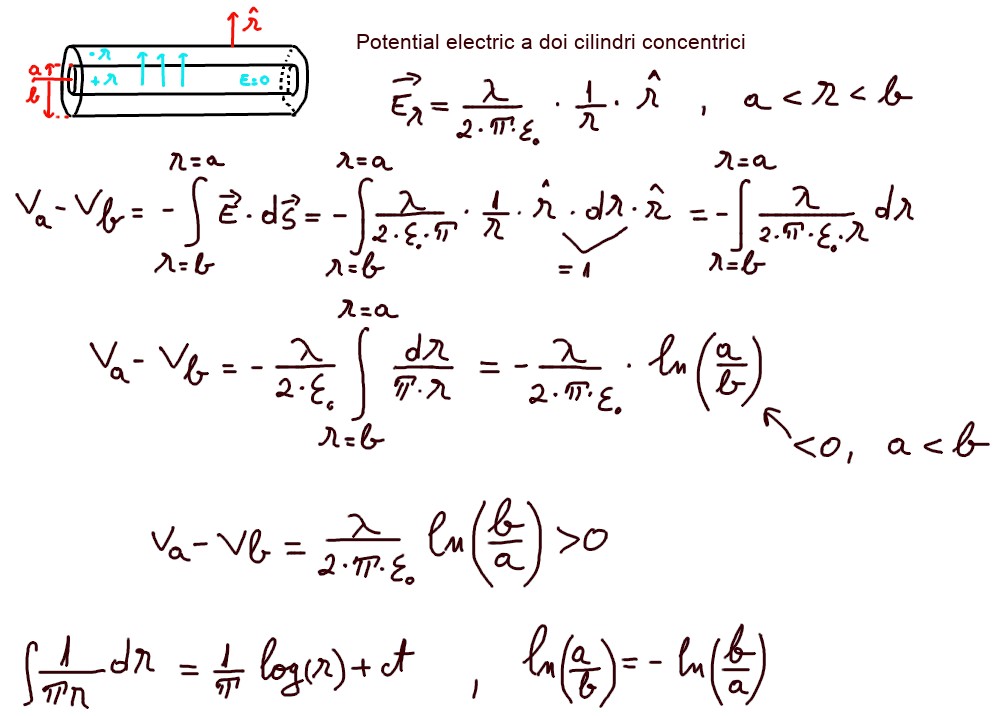 r̂
Potential electric a doi cilindri concentrici
-λ
+λ
E=0
a
b
E⃗r = λ/(2·π·ε₀) · 1/r · r̂ , a < r < b
Va - Vb = - ∫_{r=b}^{r=a} E⃗ · ds⃗ = - ∫_{r=b}^{r=a} λ/(2·ε₀·π) · 1/r · r̂ · dr · r̂ = - ∫_{r=b}^{r=a} λ/(2·π·ε₀·r) dr
= 1
Va - Vb = - λ/(2·ε₀) ∫_{r=b}^{r=a} dr/(π·r) = - λ/(2·π·ε₀) · ln(a/b)
<0, a < b
Va - Vb = λ/(2·π·ε₀) ln(b/a) >0
∫ 1/(πr) dr = 1/π log(r) + ct , ln(a/b) = - ln(b/a)